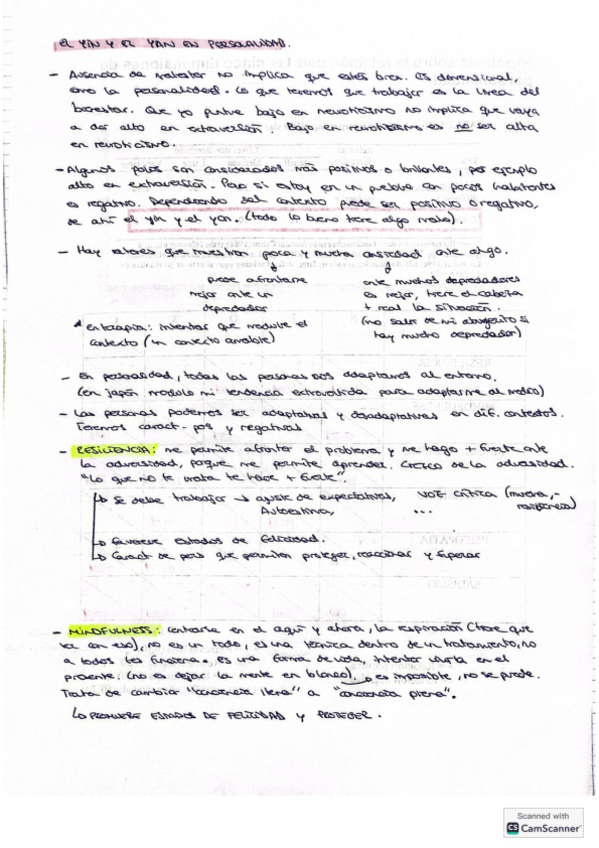 EL YIN Y EL YAN EN PERSONALIDAD.
- Ausencia de malestar no implica que estés bien. Es dimensional,
como la personalidad. Lo que tenemos que trabajar es la línea del
bienestar. Que yo puntúe bajo en neuroticismo no implica que vaya
a dar alto en extraversión. Bajo en neuroticismo es no ser alta
en neuroticismo.
- Algunos polos son considerados más positivos o brillantes, por ejemplo
alto en extraversión. Pero si estoy en un pueblo con pocos habitantes
es negativo. Dependiendo del contexto puede ser positivo o negativo,
de ahí el yin y el yan. (todo lo bueno tiene algo malo).
- Hay ratones que muestran poca y mucha ansiedad ante algo.
puede afrontarse ante muchos depredadores
mejor ante un es mejor, tiene el cabeza
depredador + real la situación.
(no salir de mi si
hay mucho depredador)
* en terapia: intentar que module el
contexto (un contexto amable)
- En personalidad, todas las personas nos adaptamos al entorno.
(en japón modulo mi tendencia extrovertida para adaptarme al medio)
- Las personas podemos ser adaptativas y desadaptativas en dif. contextos.
Tenemos caract. pos y negativas
- RESILIENCIA: me permite afrontar el problema y me hago + fuerte ante
la adversidad, porque me permite aprender. Crezco de la adversidad.
"Lo que no te mata te hace + fuerte".
↳ Se debe trabajar → ajuste de expectativas, voz crítica (mucha,-
Autoestima, ... resiliencia)
↳ Favorece estados de felicidad.
↳ Caract de pers que permiten proteger, reaccionar y superar
- MINDFULNESS: centrarse en el aquí y ahora, la respiración (hace que
en eso), no es un todo, es una técnica dentro de un tratamiento, no
a todos les funciona. es una forma de vida, intentar vivirla en el
presente. (no es dejar la mente en blanco) → es imposible, no se puede.
Trata de cambiar "conciencia llena" a "conciencia plena".
↳ PROMUEVE ESTADOS DE FELICIDAD Y PROTEGER.
Scanned with
CS CamScanner